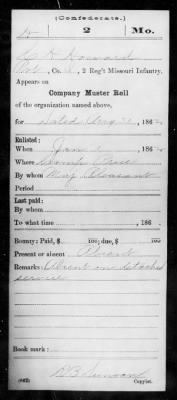 (Confederate.)
2 Mo.
Howard
Co. 2 Reg't Missouri Infantry.
Appears on
Company Muster Roll
of the organization named above,
for Dated Aug 21, 186
Enlisted:
When Jan, 186
Where
By whom Maj
Period
Last paid:
By whom
To what time, 186 .
Bounty: Paid, $ 100; due, $ 100
Present or absent Absent
Remarks: Absent on detached
service
Book mark:
(642)
Copyist.